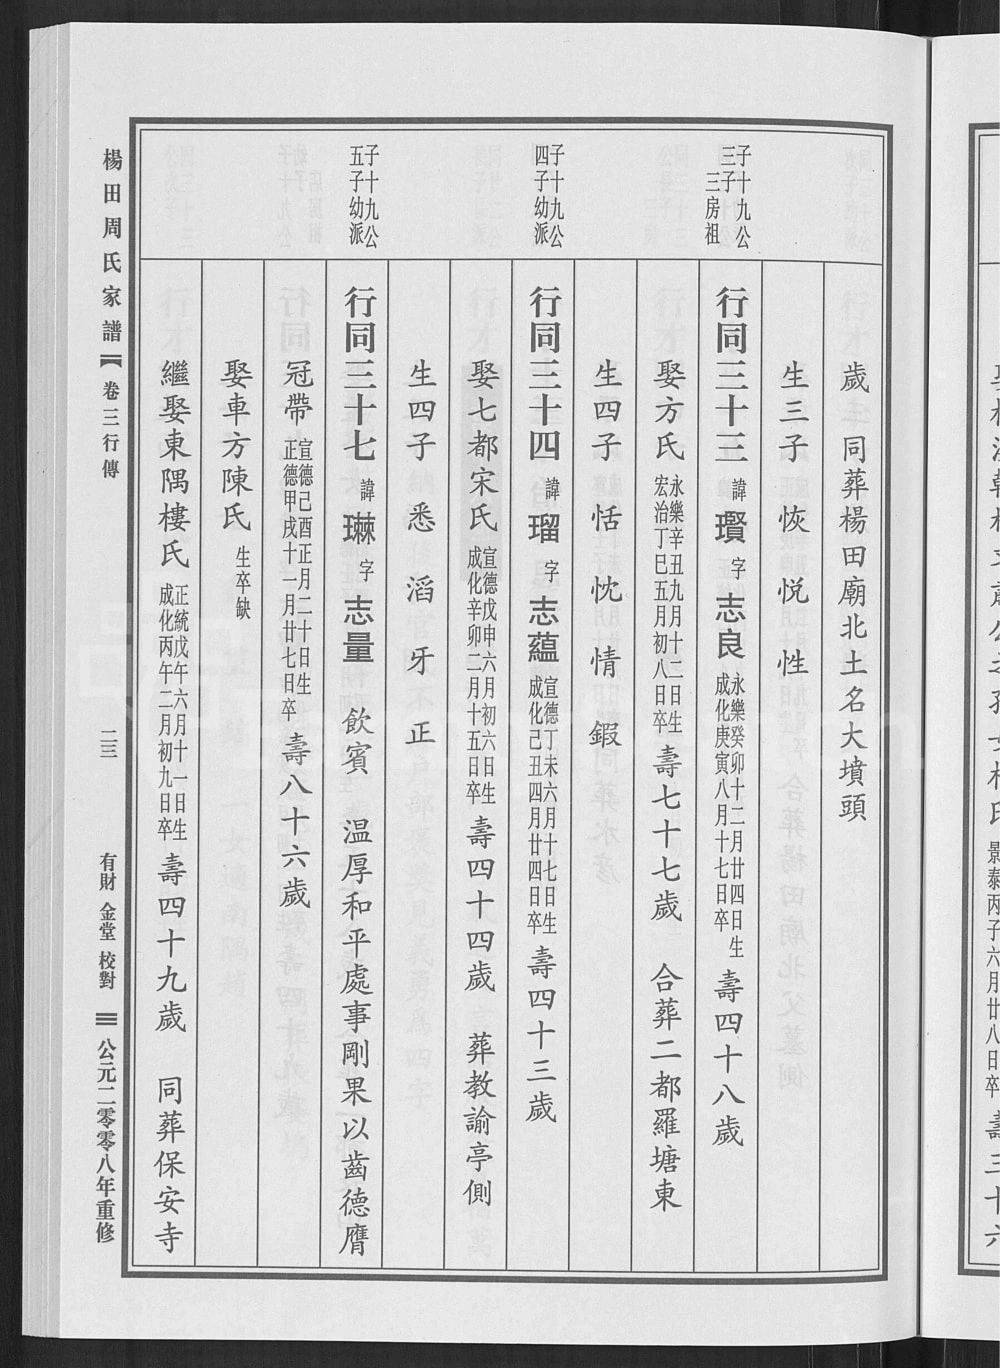 歲　同葬楊田廟北土名大墳頭
生三子　恢　悅　性
子十九公
三子
三房祖
行同三十三　諱　瓚　字　志良　永樂癸卯十二月廿四日生
成化庚寅八月十七日卒　壽四十八歲
娶方氏　永樂辛丑九月十二日生
宏治丁巳五月初八日卒　壽七十七歲　合葬二都羅塘東
生四子　恬　忱　情　鍜
子十九公
四子幼派
行同三十四　諱　瑠　字　志蘊　宣德丁未六月十七日生
成化己丑四月廿四日卒　壽四十三歲
娶七都宋氏　宣德戊申六月初六日生
成化辛卯二月十五日卒　壽四十四歲　葬教諭亭側
生四子　悉　滔　牙　正
子十九公
五子幼派
行同三十七　諱　琳　字　志量　飲賓　温厚和平處事剛果以齒德膺
冠帶　宣德己酉正月二十日生
正德甲戌十一月廿七日卒　壽八十六歲
娶車方陳氏　生卒缺
繼娶東隅樓氏　正統戊午六月十一日生
成化丙午二月初九日卒　壽四十九歲　同葬保安寺
楊田周氏家譜　卷三行傳　二三　有財　金堂　校對　公元二零零八年重修